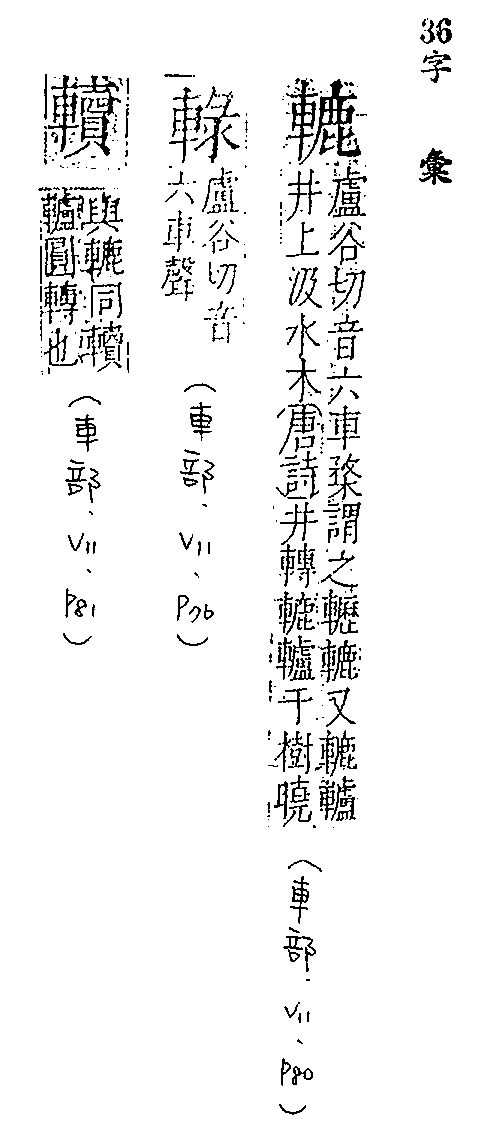 36字　彙
轆
盧谷切音六車䋷謂之轣轆又轆轤
井上汲水木唐詩井轉轆轤千樹曉
（車部．V11、P80）
䡜
盧谷切音
六車聲
（車部．V11、P76）
䡵
與轆同䡵
轤圓轉也
（車部．V11、P81）